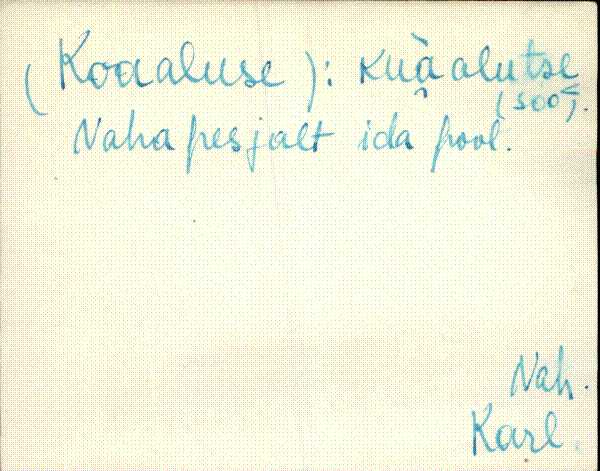 (Koaaluse): kuạ̀alutse
(soo).
Nahapesjalt ida pool.
Nah.
Karl.